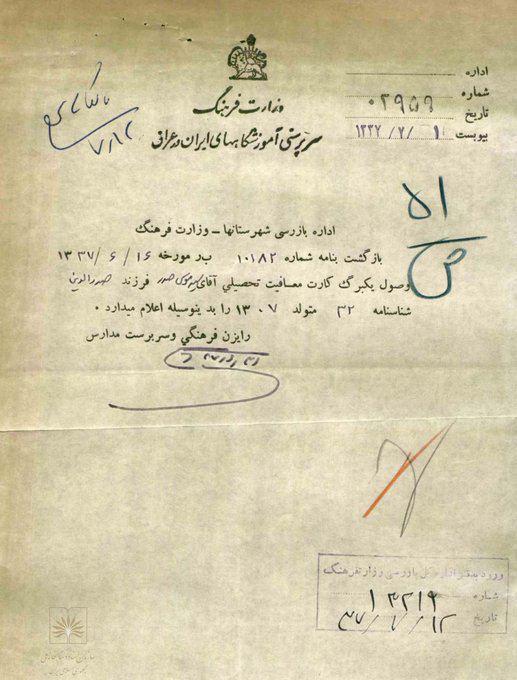 وزارت فرهنگ
سرپرستی آموزشگاههای ایران در عراق
اداره
شماره ۰۲۹۵۹
تاریخ
پیوست ۱ /۷/ ۱۳۳۷
بایگانی
۷/۱۲
اداره بازرسی شهرستانها ـ وزارت فرهنگ
بازگشت بنامه شماره ۱۰۱۸۲ ب‌ر مورخه ۱۶ /۶ /۱۳۳۷
وصول یکبرگ کارت معافیت تحصیلی آقای سید موسی صدر فرزند صدرالدین
شناسنامه ۳۲ متولد ۱۳۰۷ را بدینوسیله اعلام میدارد ۰
رایزن فرهنگی و سرپرست مدارس
ورود بدفتر اداره کل بازرسی وزارت فرهنگ
شماره ۱۳۲۱۹
تاریخ ۳۷/۷/۱۲
سازمان اسناد و کتابخانه ملی
جمهوری اسلامی ایران